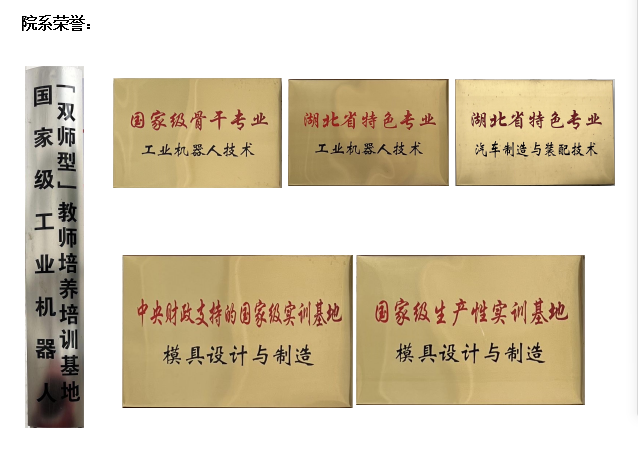 院系荣誉：
国家级工业机器人
「双师型」教师培养培训基地
国家级骨干专业
工业机器人技术
湖北省特色专业
工业机器人技术
湖北省特色专业
汽车制造与装配技术
中央财政支持的国家级实训基地
模具设计与制造
国家级生产性实训基地
模具设计与制造